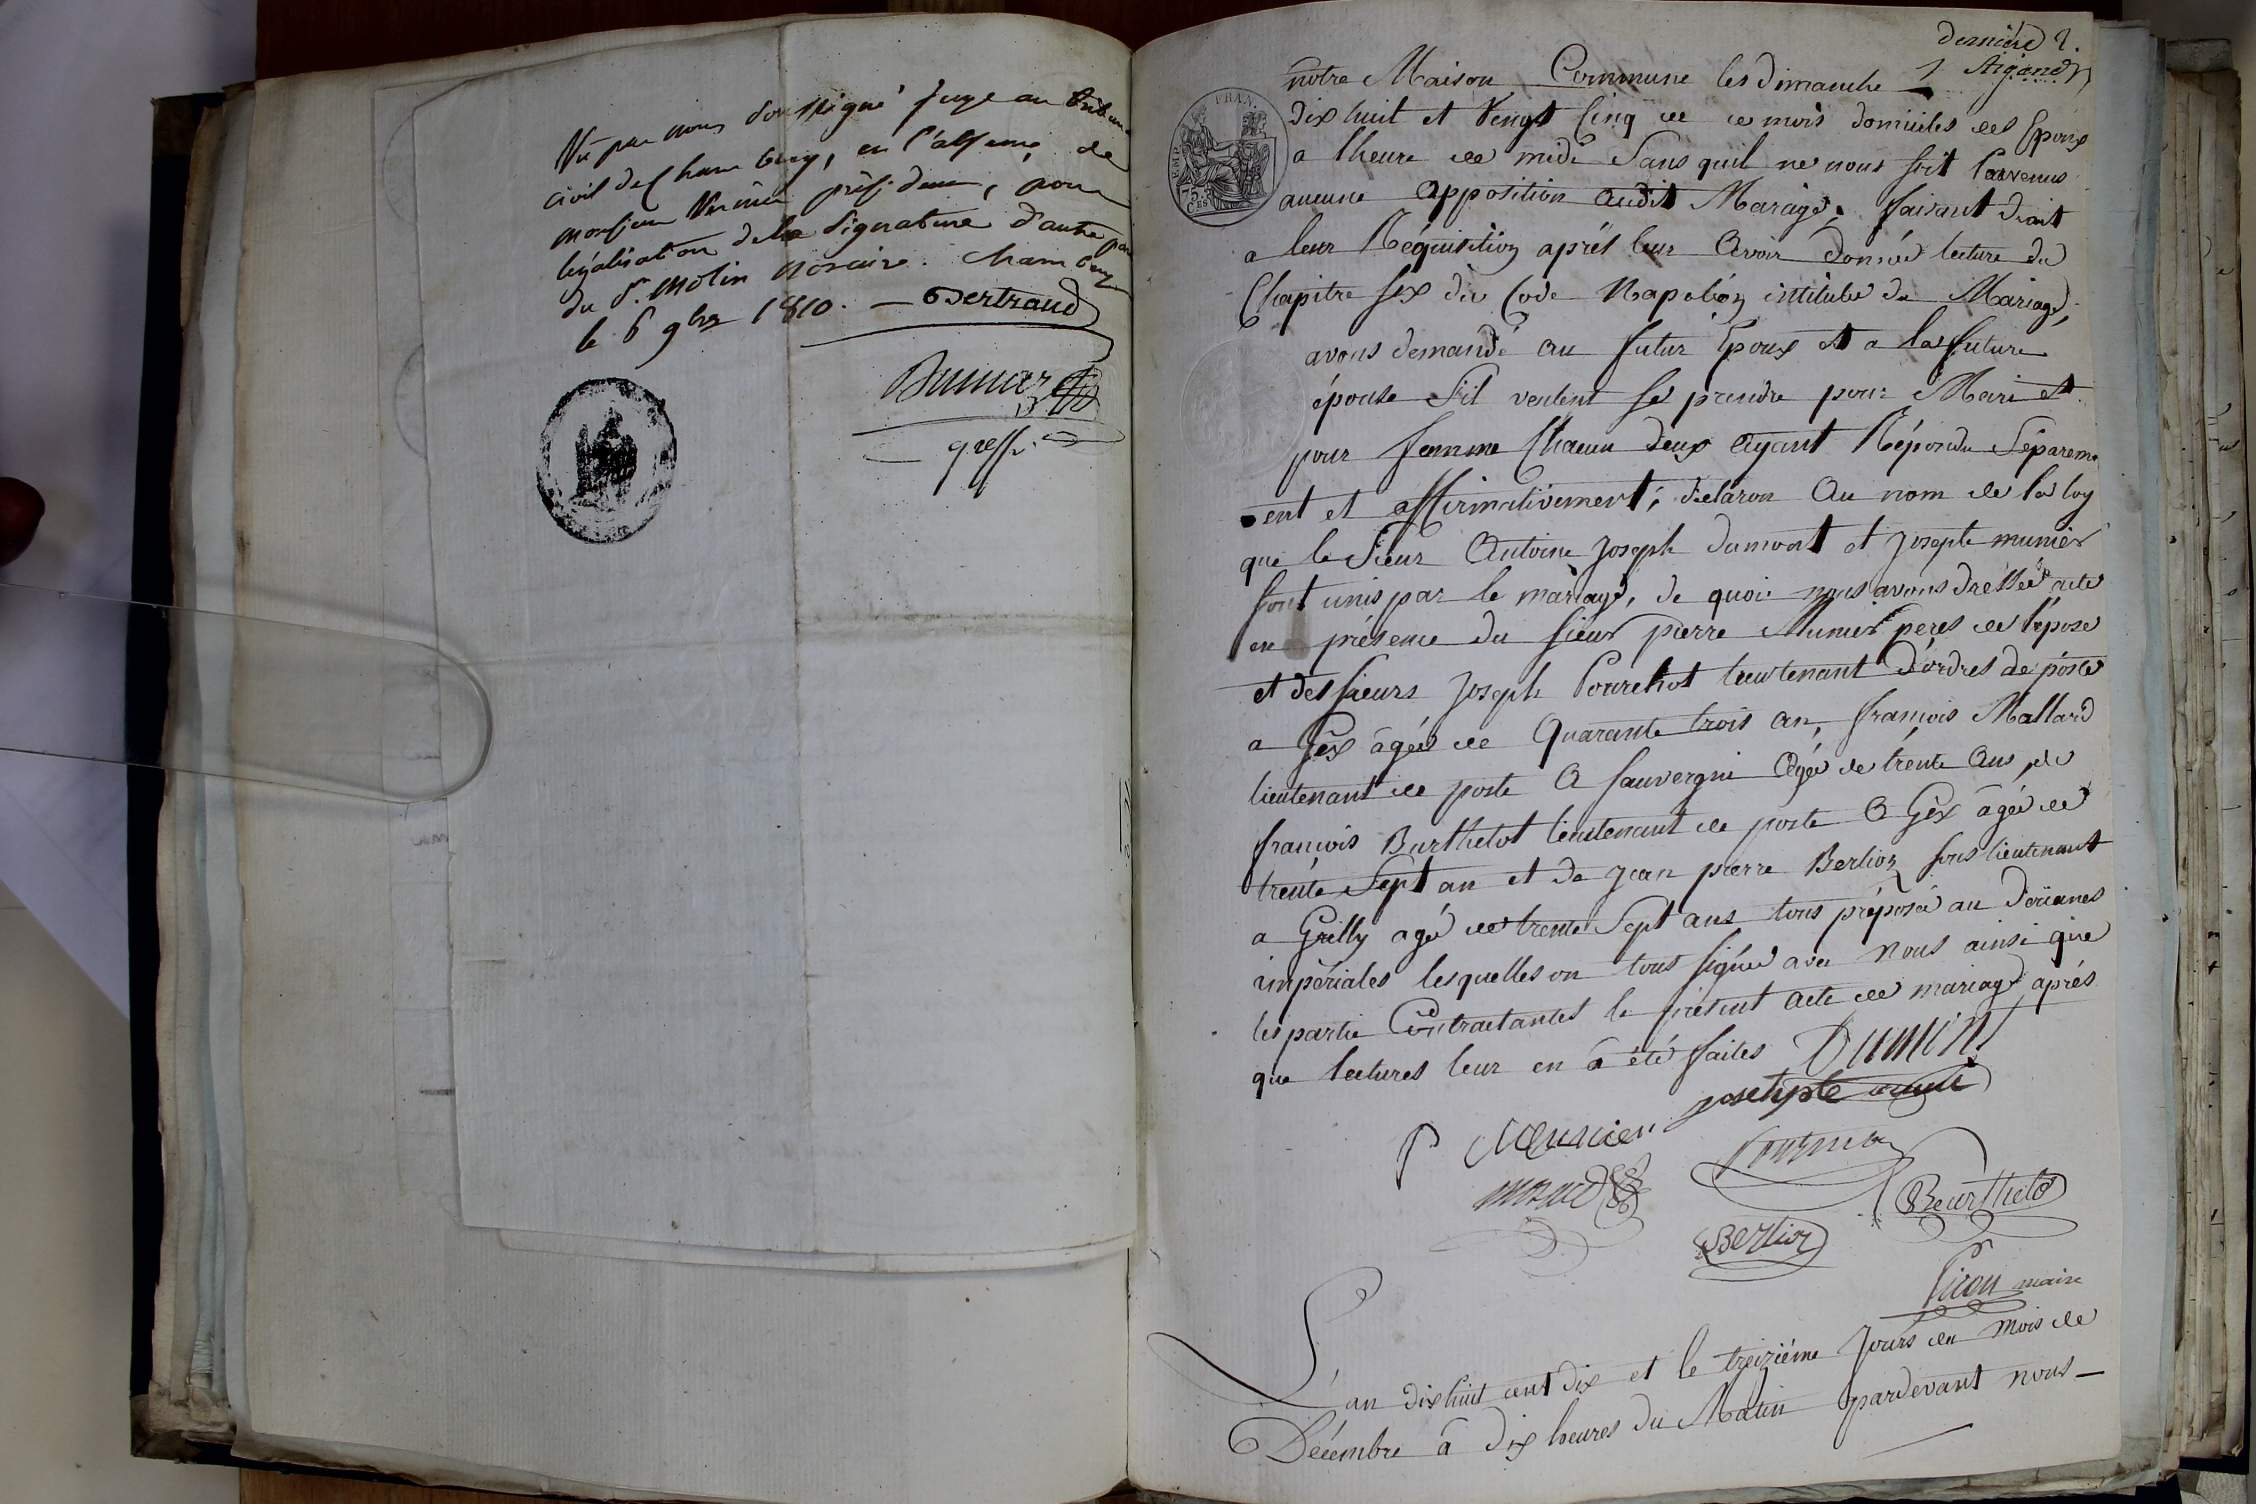 Vû par nous soussigné juge au tribunal
civil de Chambery, en l'absence de
monsieur Vernier président, pour
légalisation de la signature d'autre part
du Sr. Molin notaire. Chambery
le 6 9bre 1810. — Bertrand
greffr
dernière
notre Maison Commune les dimanche
dix huit et Vengt Cinq de ce mois domiciles des Epoux
a lheure de midi Sans quil ne nous soit Parvenus
aucune apposition audit Mariage. faisant droit
a leur Réquisition aprés leur avoir donnée lecture du
Chapitre six du Code Napoléon intitulé du Mariage,
avons demandé au futur Epoux et a la future
épouse Sil veulent se prendre pour Mari et
pour femme Chacun deux ayant Répondu Séparem
ent et affirmativement, déclaron Au nom de la loy
que le Sieur Antoine Joseph dumont et Josephte munier
sont unis par le mariage, de quoi nous avons dressée acte
en présence du sieur pierre Munier peres de l'épose
et des sieurs Joseph Pourchot lieutenant d'ordres de poste
a Gex âgée de Quarante trois an, françois Mallard
lieutenant de poste A Sauvergni Agée de trente Ans, de
françois Burthelot lieutenant de poste A Gèx âgée de
trente Sept an et de Jean pierre Berlioz sous lieutenant
a Grilly agé de trente Sept ans tous préposé au Doüanes
impériales lesquelles on tous signée avec Nous ainsi que
les partie Contractantes le présent acte de mariage aprés
que lectures leur en a été faites Dumont
P Meunier
Beurthelot
Berlioz
maire
L'an dix huit cent dix et le treiziéme Jours du Mois de
Décembre â dix heures du Matin pardevant nous —
EMP. FRAN.
75.